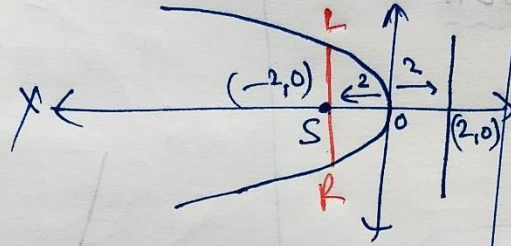 L
(-2,0) 2 2
X S O (2,0)
R